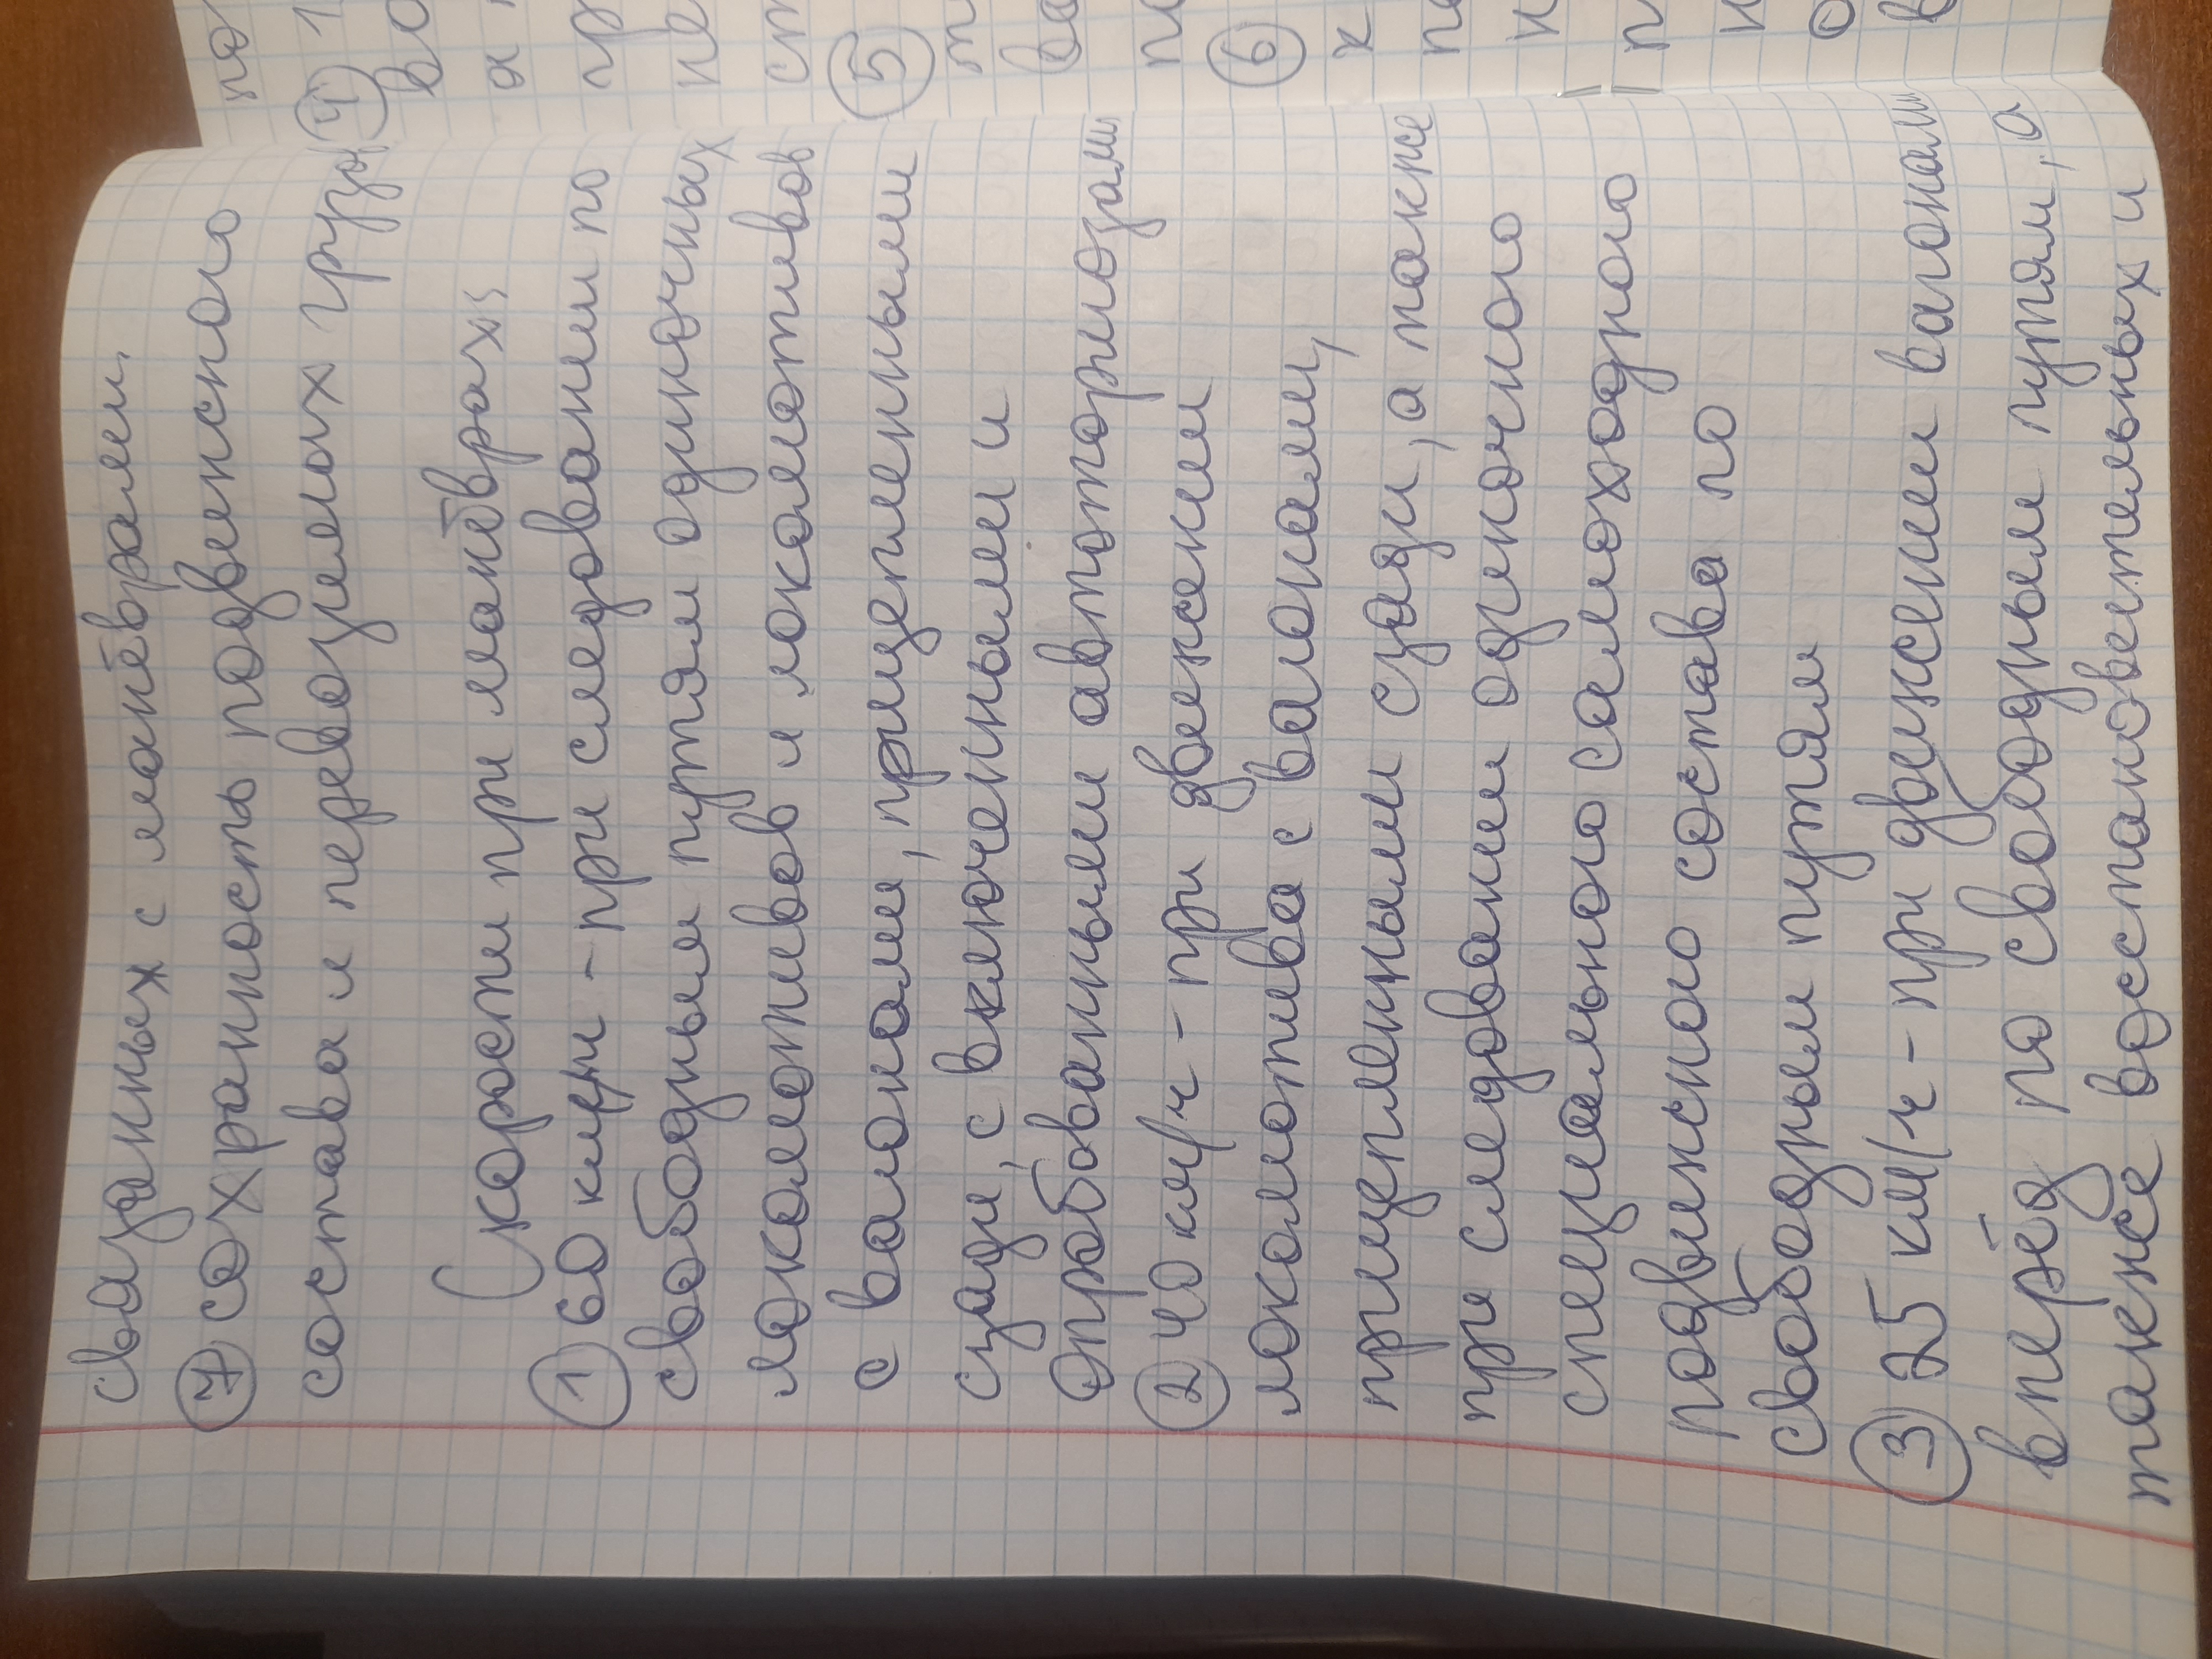 связанных с манёврами.
⑦ сохранность подвенсного
состава и перевозимых грузов
Скорости при манёврах:
① 60 км/ч - при следовании по
свободным путям одиночных
локомотивов и локомотивов
с вагонами, прицепленными
сзади, с включенными и
опробованными автотормозами
② 40 км/ч - при движении
локомотива с вагонами,
прицепленными сзади, а также
при следовании одиночного
специального самоходного
подвижного состава по
свободным путям
③ 25 км/ч - при движении вагонами
вперёд по свободным путям, а
также востановительных и
④ 1
⑤
⑥